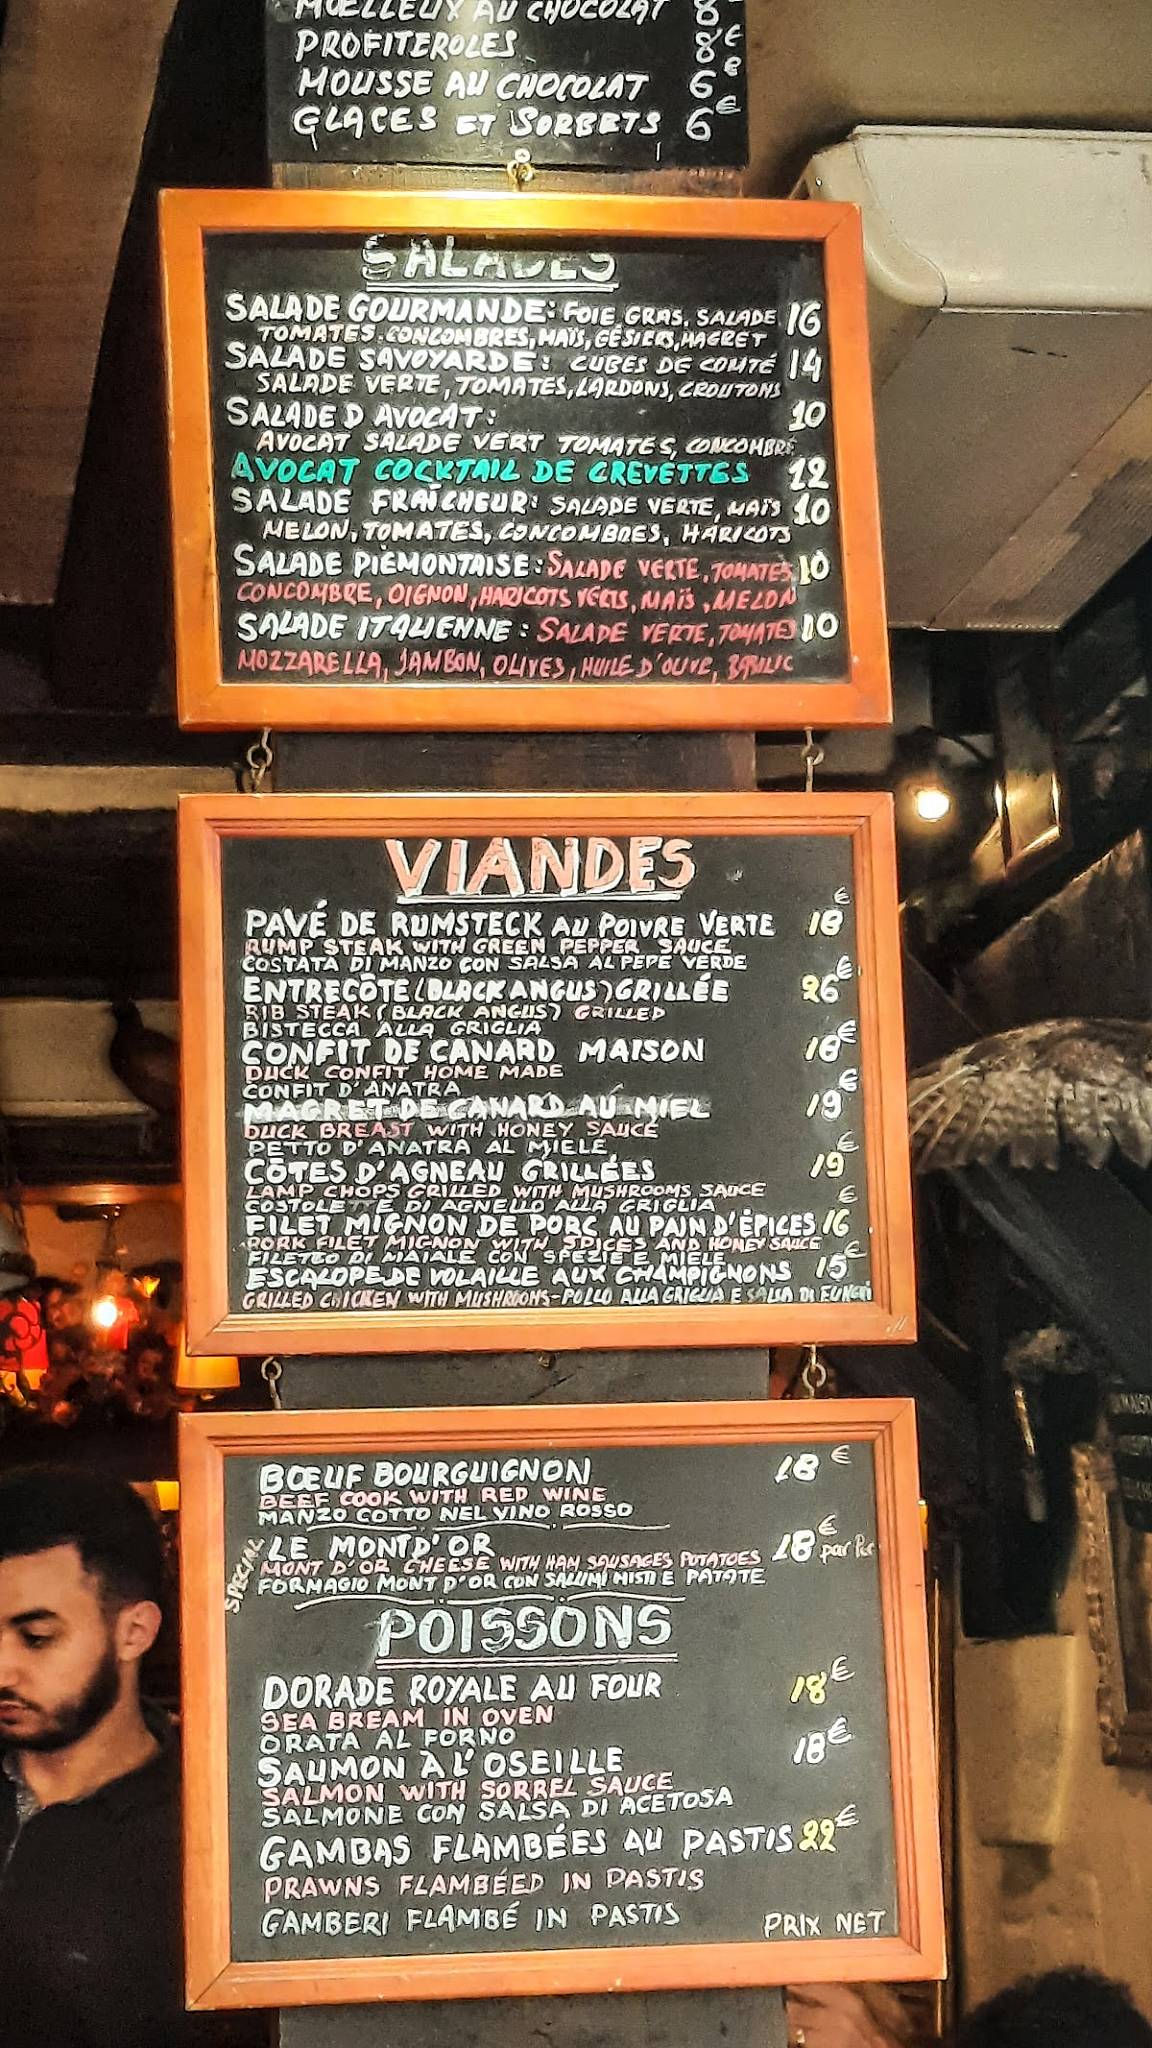 MOELLEUX AU CHOCOLAT 8€
PROFITEROLES 8€
MOUSSE AU CHOCOLAT 6€
GLACES ET SORBETS 6€
SALADES
SALADE GOURMANDE: FOIE GRAS, SALADE 16
TOMATES, CONCOMBRES, MAÏS, GÉSIERS, MAGRET
SALADE SAVOYARDE: CUBES DE COMTÉ 14
SALADE VERTE, TOMATES, LARDONS, CROUTONS
SALADE D AVOCAT: 10
AVOCAT SALADE VERT TOMATES, CONCOMBRE
AVOCAT COCKTAIL DE CREVETTES 12
SALADE FRAÎCHEUR: SALADE VERTE, MAÏS 10
MELON, TOMATES, CONCOMBRES, HARICOTS
SALADE PIÈMONTAISE: SALADE VERTE, TOMATES 10
CONCOMBRE, OIGNON, HARICOTS VERTS, MAÏS, MELON
SALADE ITALIENNE: SALADE VERTE, TOMATES 10
MOZZARELLA, JAMBON, OLIVES, HUILE D'OLIVE, BASILIC
VIANDES
PAVÉ DE RUMSTECK AU POIVRE VERTE 18€
RUMP STEAK WITH GREEN PEPPER SAUCE
COSTATA DI MANZO CON SALSA AL PEPE VERDE
ENTRECÔTE (BLACK ANGUS) GRILLÉE 26€
RIB STEAK (BLACK ANGUS) GRILLED
BISTECCA ALLA GRIGLIA
CONFIT DE CANARD MAISON 18€
DUCK CONFIT HOME MADE
CONFIT D'ANATRA
MAGRET DE CANARD AU MIEL 19€
DUCK BREAST WITH HONEY SAUCE
PETTO D'ANATRA AL MIELE
CÔTES D'AGNEAU GRILLÉES 19€
LAMP CHOPS GRILLED WITH MUSHROOMS SAUCE
COSTOLETTE DI AGNELLO ALLA GRIGLIA
FILET MIGNON DE PORC AU PAIN D'ÉPICES 16€
PORK FILET MIGNON WITH SPICES AND HONEY SAUCE
FILETTO DI MAIALE CON SPEZIE E MIELE
ESCALOPE DE VOLAILLE AUX CHAMPIGNONS 15€
GRILLED CHICKEN WITH MUSHROOMS - POLLO ALLA GRIGLIA E SALSA DI FUNGHI
BŒUF BOURGUIGNON 18€
BEEF COOK WITH RED WINE
MANZO COTTO NEL VINO ROSSO
SPECIAL
LE MONT D'OR 18€ par Per
MONT D'OR CHEESE WITH HAM SAUSAGES POTATOES
FORMAGIO MONT D'OR CON SALUMI MISTI E PATATE
POISSONS
DORADE ROYALE AU FOUR 18€
SEA BREAM IN OVEN
ORATA AL FORNO
SAUMON À L'OSEILLE 18€
SALMON WITH SORREL SAUCE
SALMONE CON SALSA DI ACETOSA
GAMBAS FLAMBÉES AU PASTIS 22€
PRAWNS FLAMBÉED IN PASTIS
GAMBERI FLAMBÉ IN PASTIS
PRIX NET